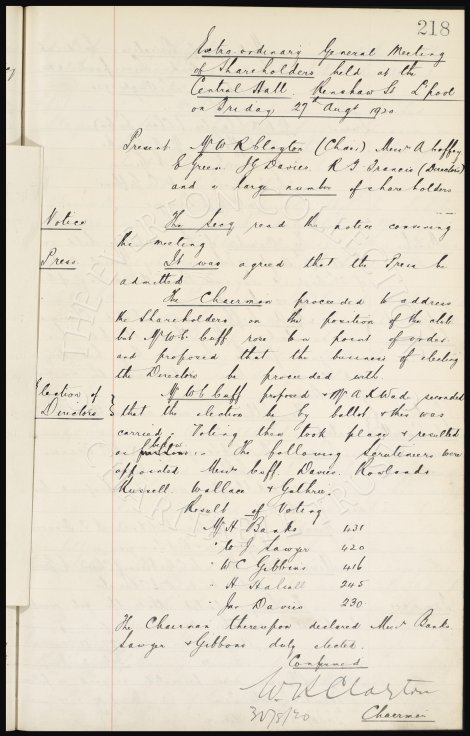 218
Extra-ordinary General Meeting
of Shareholders held at the
Central Hall. Renshaw St L'pool
on Friday 27th Augt 1920
Present Mr W R Clayton (Chair) Messrs A Coffey
E Green J G Davies R T Francis (Directors)
and a large number of shareholders
Notice
The Secy read the notice convening
the meeting
Press
It was agreed that the Press be
admitted
The Chairman proceeded to address
the Shareholders on the position of the club
but Mr W C Cuff rose to a point of order
and proposed that the business of electing
the Directors be proceeded with.
Election of
Directors
Mr W C Cuff proposed & Mr A R Wade seconded
that the election be by ballot & this was
carried. Voting then took place & resulted
as below :- The following Scrutineers were
appointed Messrs Cuff. Davies. Rowlands
Kurrell. Wallace & Guthrie.
Result of Voting
Mr H Banks 431
" W J Sawyer 420
" W C Gibbins 416
" H Halsall 245
" Jno Davies 230
The Chairman thereupon declared Messrs Banks
Sawyer & Gibbons duly elected.
Confirmed
W R Clayton
31/8/20 Chairman
THE EVERTON COLLECTION
CHARITABLE TRUST